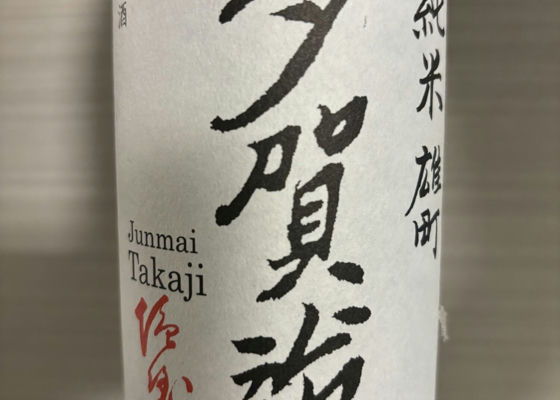 純米 雄町
多賀治
酒
Junmai
Takaji